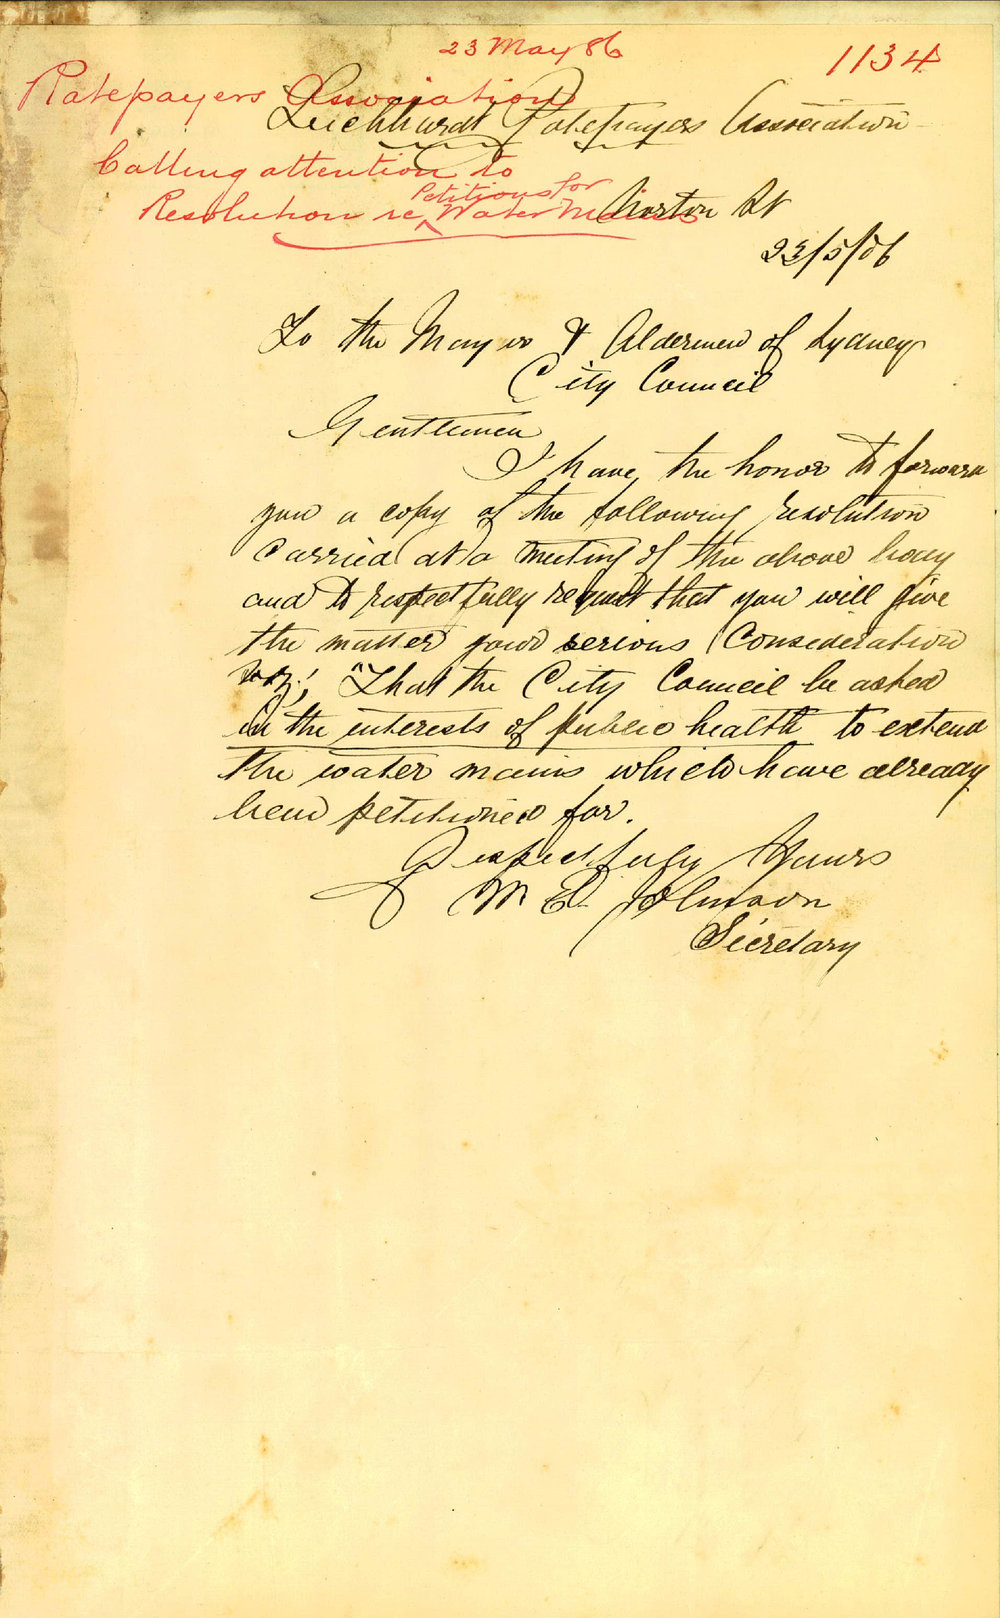 23 May 86
1134
Ratepayers Association
Calling attention to
Resolution re Petitions for Water Mains
Leichhardt Ratepayers Association
Norton St
23/5/86
To the Mayor & Aldermen of Sydney
City Council
Gentlemen
I have the honor to forward
you a copy of the following resolution
carried at a meeting of the above body
and to respectfully request that you will give
the matter your serious Consideration
viz; "That the City Council be asked
in the interests of public health to extend
the water mains which have already
been petitioned for.
Respectfully Yours
W. E. Johnson
Secretary